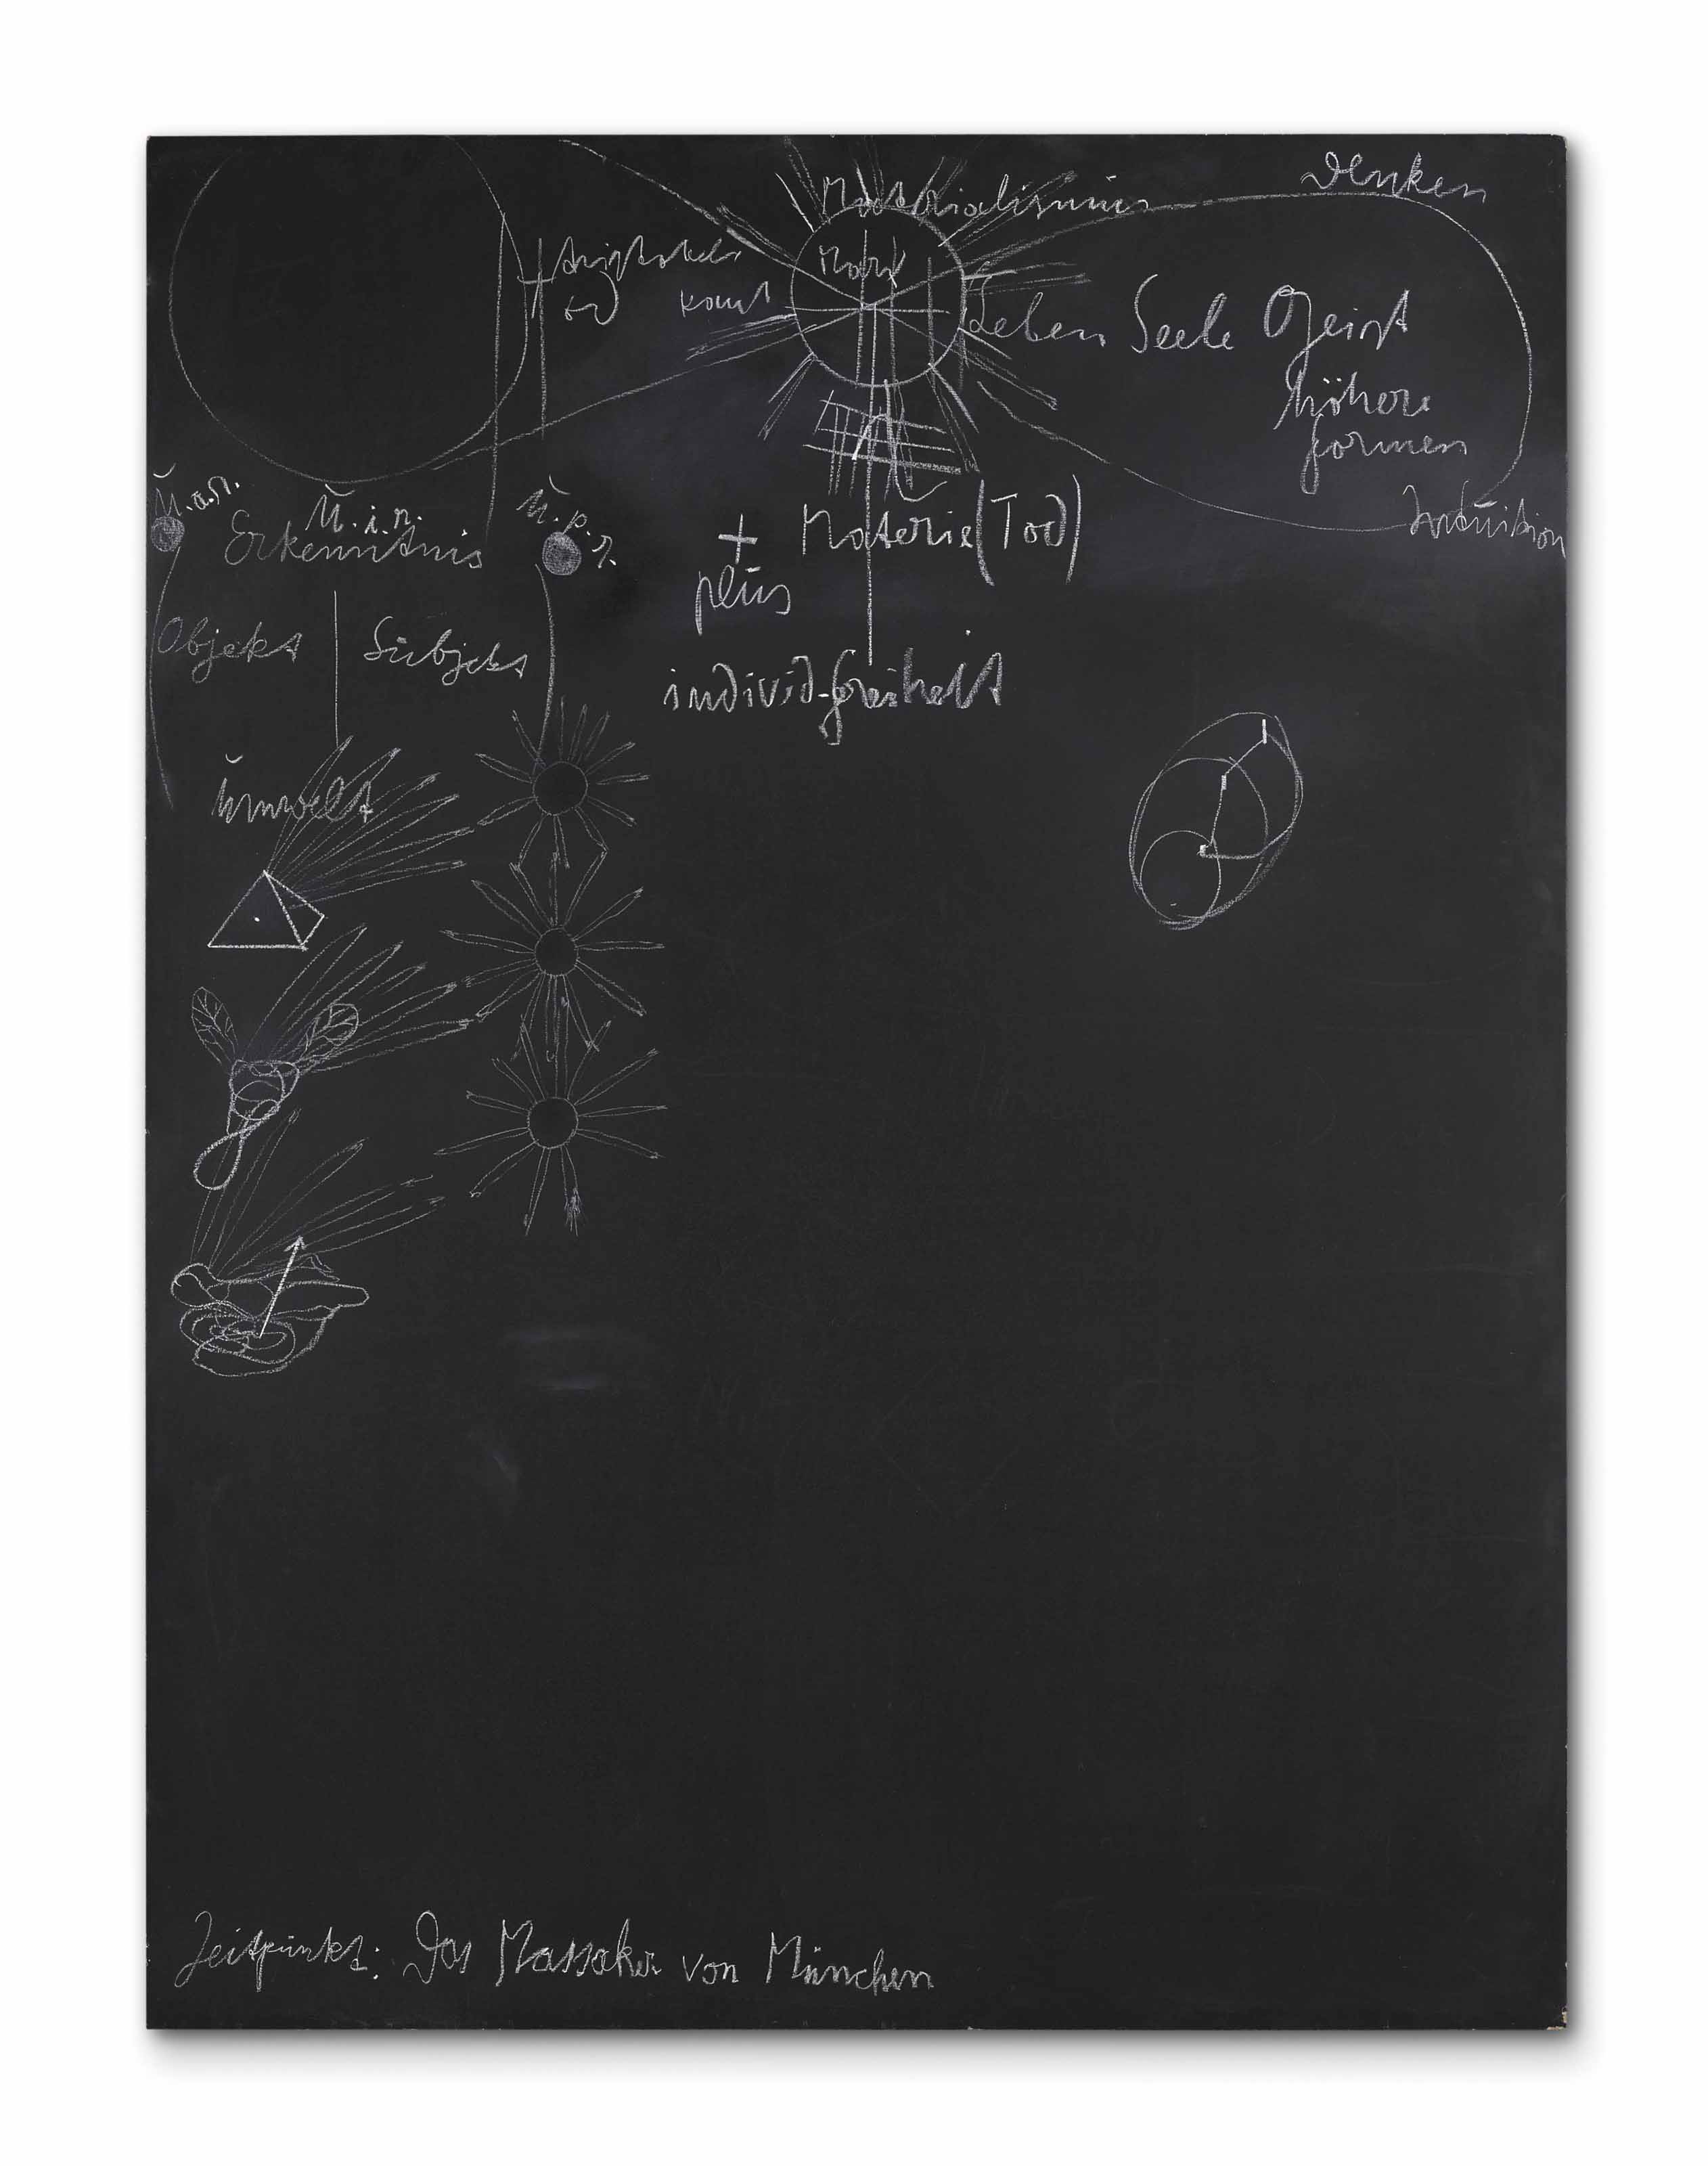 Denken
Materialismus
Marx
Kant
Leben Seele Geist
höhere
Formen
Intuition
U.a.n.
U.i.n.
U.p.n.
Erkenntnis
+ Materie (Tod)
plus
Objekt | Subjekt
individ-freiheit
Umwelt
Zeitpunkt: Das Massaker von München